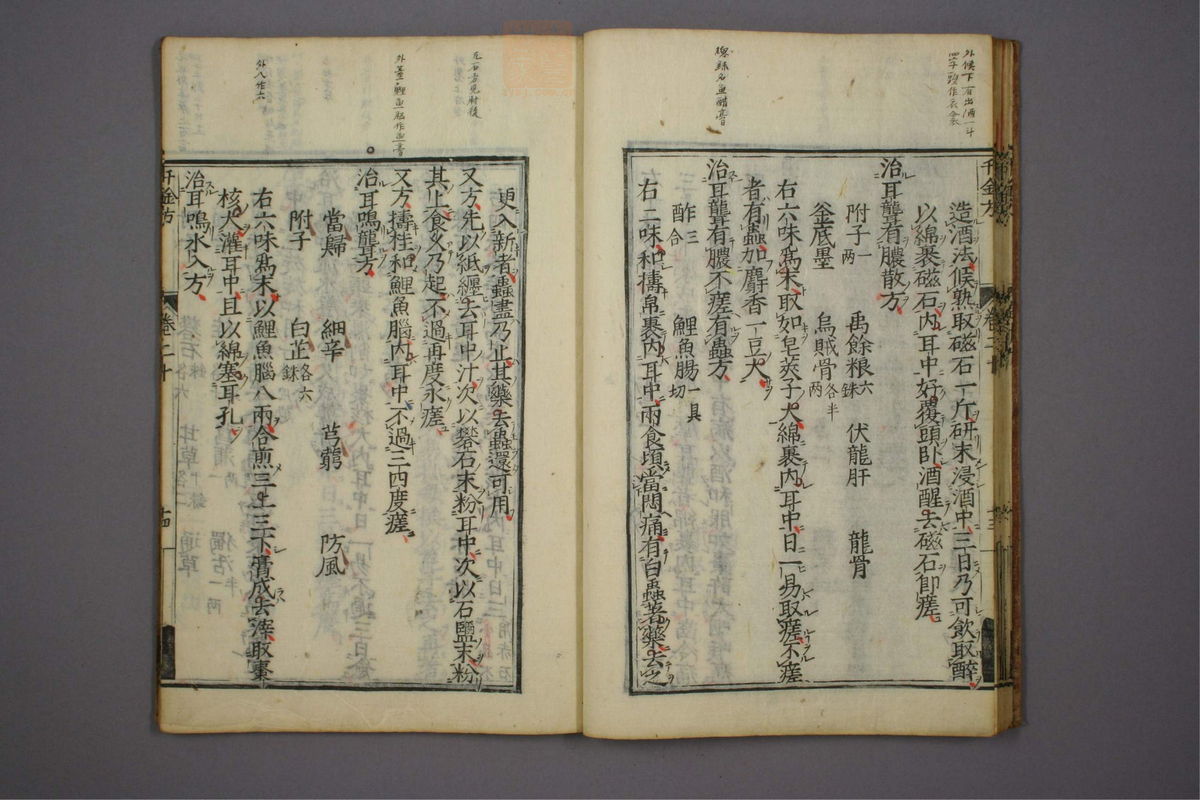 千金方 卷二十 十三
造酒法候熟取磁石一斤研末浸酒中三日乃可飲取醉
以綿裹磁石内耳中好覆頭臥酒醒去磁石即瘥
治耳聾有膿散方
附子一兩 禹餘粮六銖 伏龍肝 龍骨
釜底墨 烏賊骨各半兩
右六味爲末取如皂莢子大綿裹内耳中日一易取瘥不瘥
者有蟲加麝香一豆大
治耳聾有膿不瘥有蟲方
酢三合 鯉魚腸一具切
右二味和擣帛裹内耳中兩食頃當悶痛有白蟲著藥去之
更入新者蟲盡乃止其藥去蟲還可用
又方先以紙纏去耳中汁次以礬石末粉耳中次以石鹽末粉
其上食久乃起不過再度永瘥
又方擣桂和鯉魚腦内耳中不過三四度瘥
治耳鳴聾方
當歸 細辛 芎藭 防風
附子 白芷各六銖
右六味爲末以鯉魚腦八兩合煎三上三下膏成去滓取棗
核大灌耳中且以綿塞耳孔
治耳鳴水入方
千金方 卷二十 十四
外候下有出酒一斗
四字
魚醋膏
見肘後
外八作六